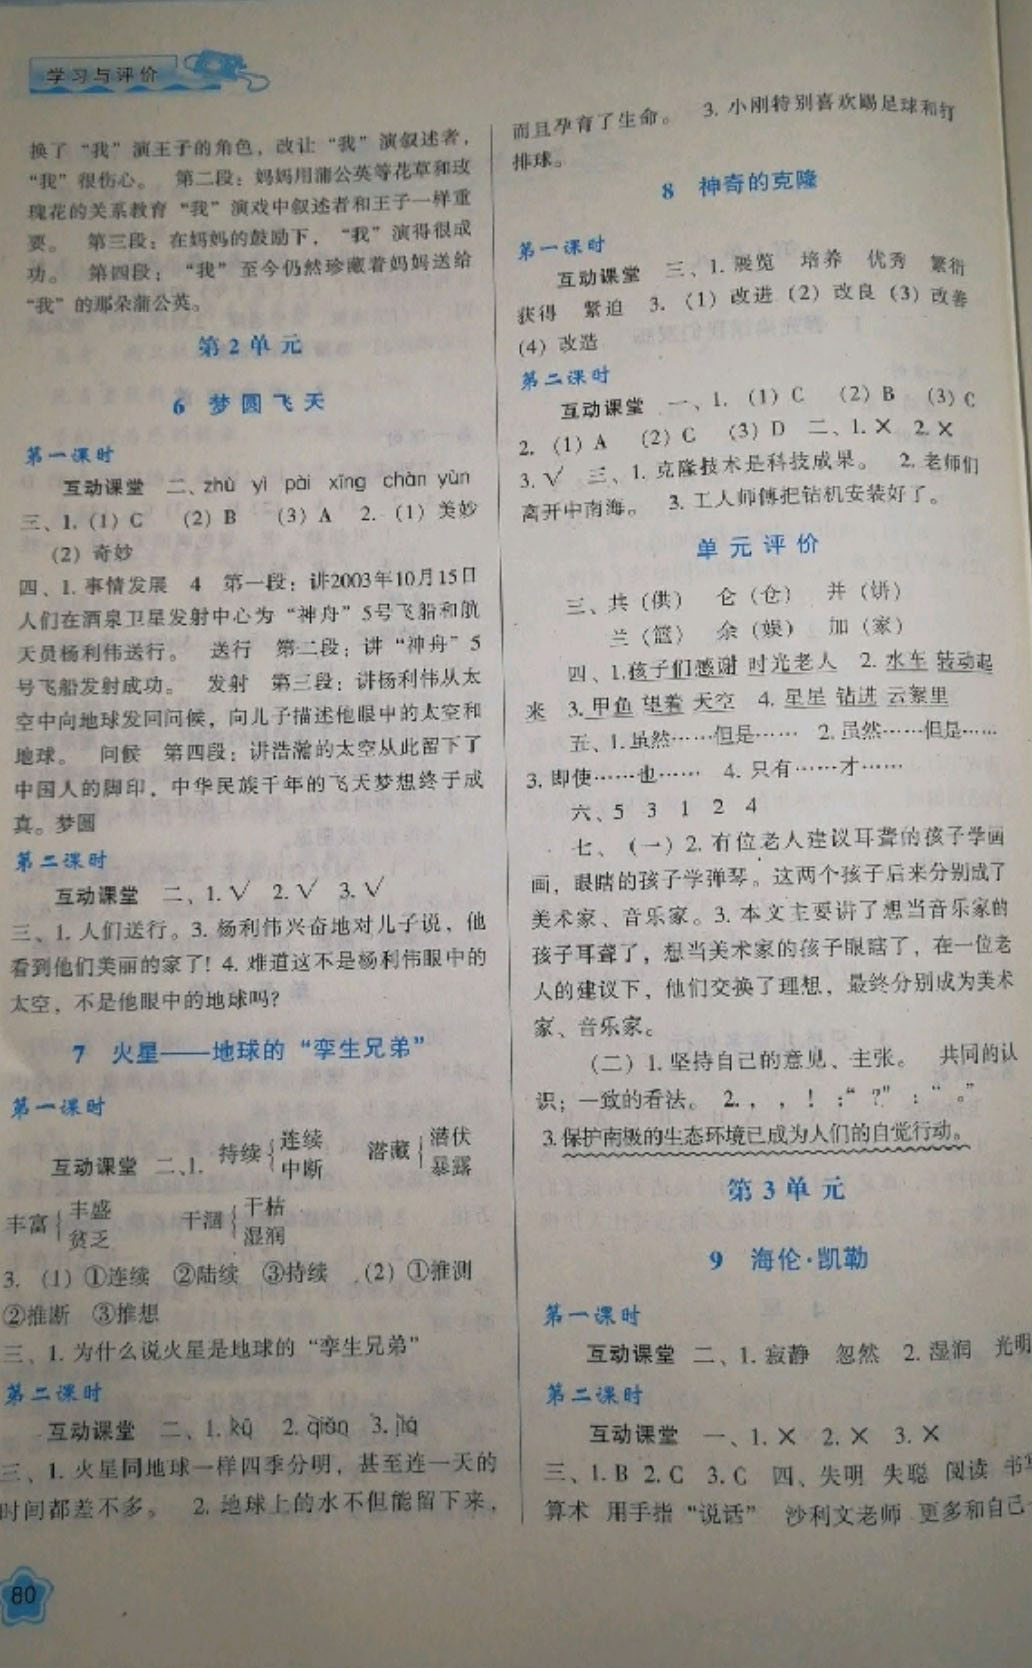 学习与评价
换了“我”演王子的角色，改让“我”演叙述者，
“我”很伤心。 第二段：妈妈用蒲公英等花草和玫
瑰花的关系教育“我”演戏中叙述者和王子一样重
要。 第三段：在妈妈的鼓励下，“我”演得很成
功。 第四段：“我”至今仍然珍藏着妈妈送给
“我”的那朵蒲公英。
第2单元
6 梦圆飞天
第一课时
互动课堂 二、zhù yì pài xīng chàn yùn
三、1. (1) C (2) B (3) A 2. (1) 美妙
(2) 奇妙
四、1. 事情发展 4 第一段：讲2003年10月15日
人们在酒泉卫星发射中心为“神舟”5号飞船和航
天员杨利伟送行。 送行 第二段：讲“神舟”5
号飞船发射成功。 发射 第三段：讲杨利伟从太
空中向地球发回问候，向儿子描述他眼中的太空和
地球。 问候 第四段：讲浩瀚的太空从此留下了
中国人的脚印，中华民族千年的飞天梦想终于成
真。梦圆
第二课时
互动课堂 二、1. √ 2. √ 3. √
三、1. 人们送行。3. 杨利伟兴奋地对儿子说，他
看到他们美丽的家了! 4. 难道这不是杨利伟眼中的
太空，不是他眼中的地球吗?
7 火星——地球的“孪生兄弟”
第一课时
互动课堂 二、1. 持续{连续 中断 潜藏{潜伏 暴露
丰富{丰盛 贫乏 干涸{干枯 湿润
3. (1) ①连续 ②陆续 ③持续 (2) ①推测
②推断 ③推想
三、1. 为什么说火星是地球的“孪生兄弟”
第二课时
互动课堂 二、1. kū 2. 3.
三、1. 火星同地球一样四季分明，甚至连一天的
时间都差不多。 2. 地球上的水不但能留下来，
80
而且孕育了生命。 3. 小刚特别喜欢踢足球和打
排球。
8 神奇的克隆
第一课时
互动课堂 三、1. 展览 培养 优秀 繁衍
获得 紧迫 3. (1) 改进 (2) 改良 (3) 改善
(4) 改造
第二课时
互动课堂 一、1. (1) C (2) B (3) C
2. (1) A (2) C (3) D 二、1. × 2. ×
3. √ 三、1. 克隆技术是科技成果。 2. 老师们
离开中南海。 3. 工人师傅把钻机安装好了。
单元评价
三、共（供） 仑（仓） 并（饼）
兰（篮） 余（娱） 加（家）
四、1. 孩子们感谢 时光老人 2. 水车 转动起
来 3. 甲鱼 望着 天空 4. 星星 钻进 云絮里
五、1. 虽然……但是…… 2. 虽然……但是……
3. 即使……也…… 4. 只有……才……
六、5 3 1 2 4
七、(一) 2. 有位老人建议耳聋的孩子学画
画，眼瞎的孩子学弹琴。这两个孩子后来分别成了
美术家、音乐家。3. 本文主要讲了想当音乐家的
孩子耳聋了，想当美术家的孩子眼瞎了，在一位老
人的建议下，他们交换了理想，最终分别成为美术
家、音乐家。
(二) 1. 坚持自己的意见、主张。 共同的认
识；一致的看法。 2. ， ， ！ ：“ ？” ：“ 。”
3. 保护南极的生态环境已成为人们的自觉行动。
第3单元
9 海伦·凯勒
第一课时
互动课堂 二、1. 寂静 忽然 2. 湿润 光明
第二课时
互动课堂 一、1. × 2. × 3. ×
三、1. B 2. C 3. C 四、失明 失聪 阅读 书写
算术 用手指“说话” 沙利文老师 更多和自己